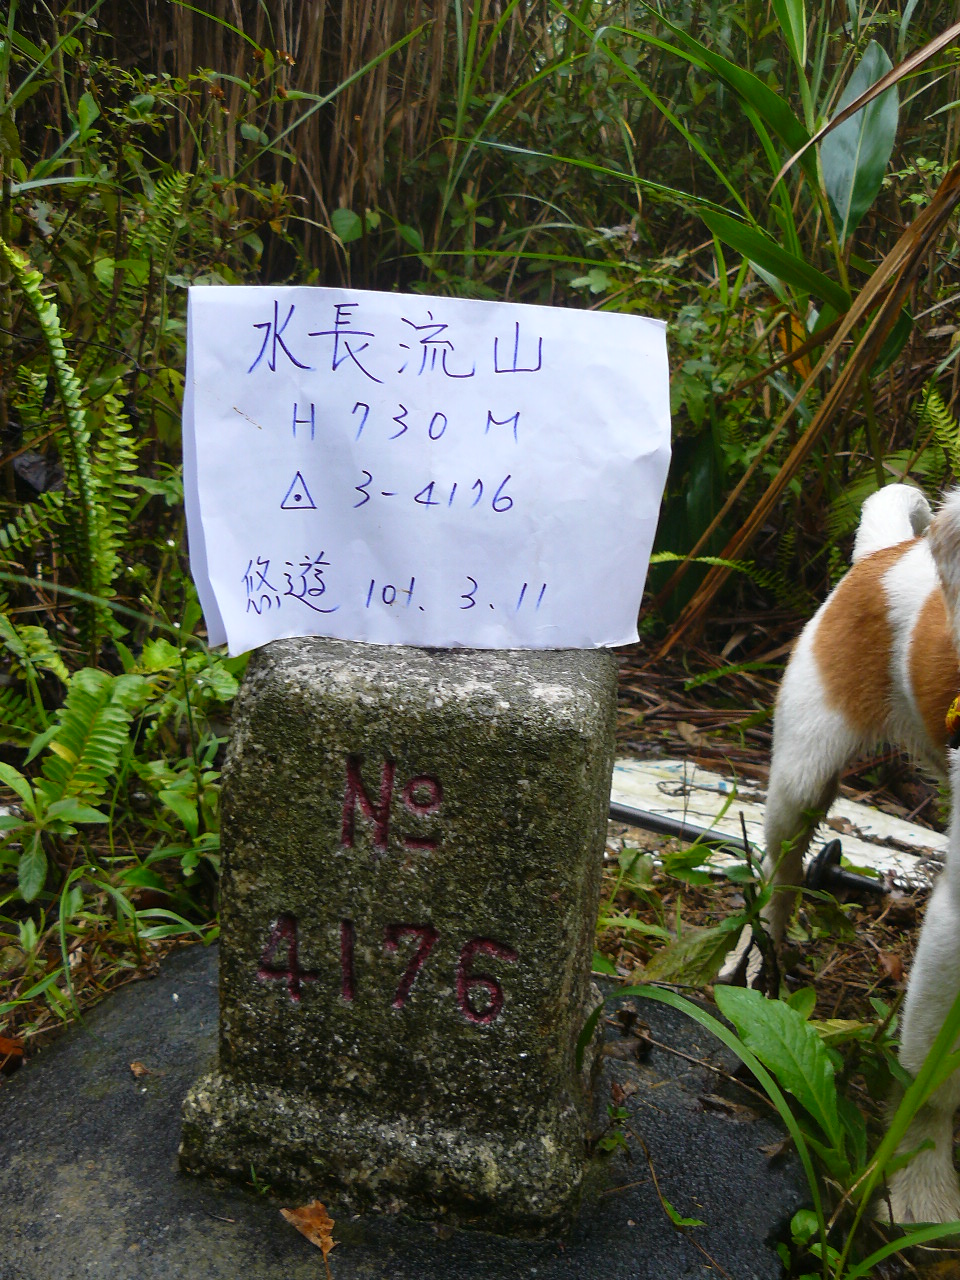 水長流山
H 730 M
△ 3-4176
悠遊 101. 3. 11
No
4176